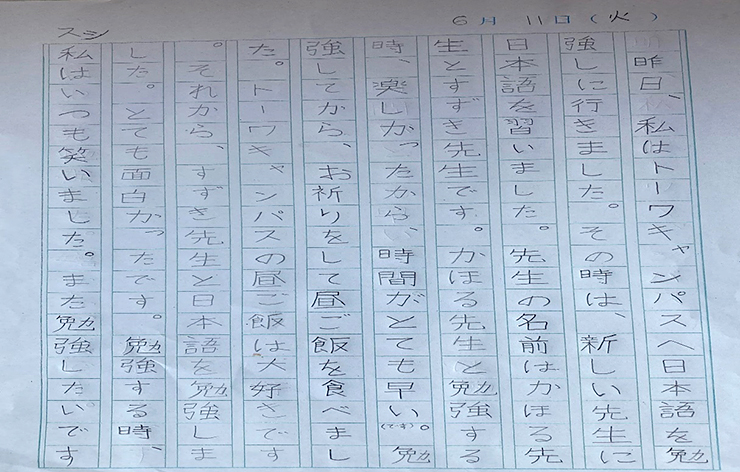 6月 11日(火)
スシ
昨日、私はトーワキャンパスへ日本語を勉
強しに行きました。その時は、新しい先生に
日本語を習いました。先生の名前はかほる先
生とすずき先生です。かほる先生と勉強する
時、楽しかったから、時間がとても早い(です)。勉
強してから、お祈りをして昼ご飯を食べまし
た。トーワキャンパスの昼ご飯は大好きです
。それから、すずき先生と日本語を勉強しま
した。とても面白かったです。勉強する時、
私はいつも笑いました。また勉強したいです